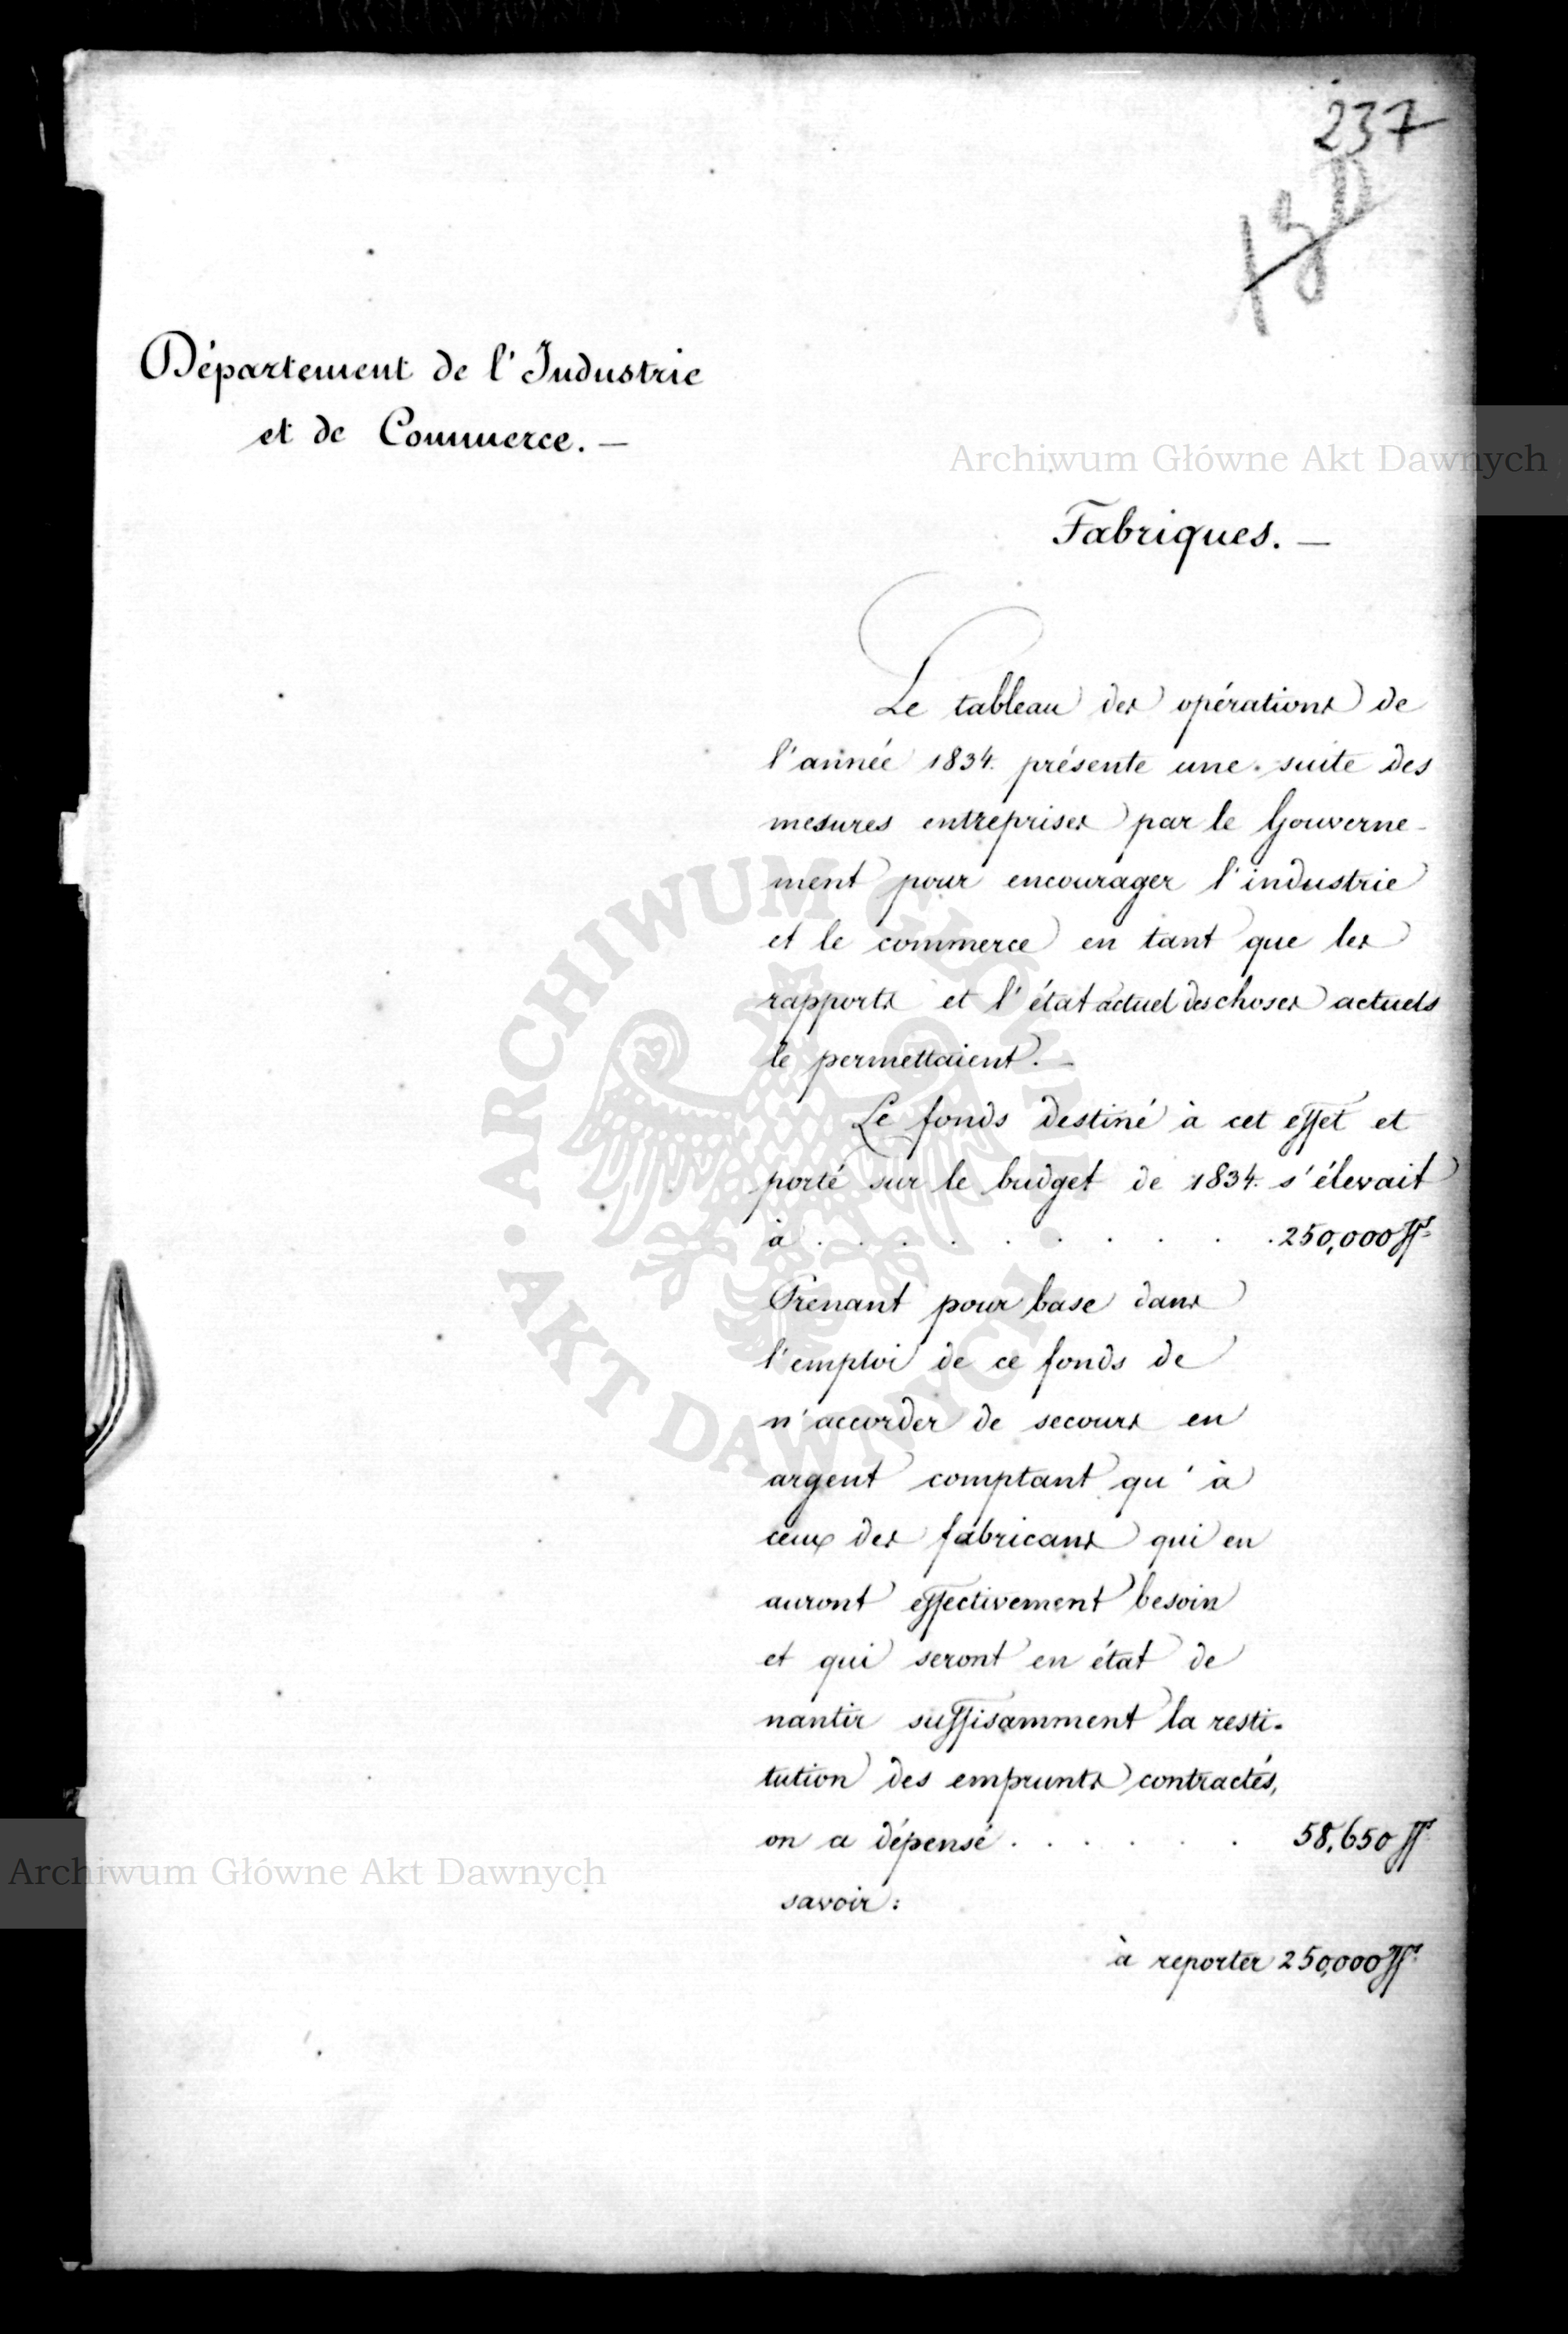 237
Département de l'Industrie
et de Commerce. —
Archiwum Główne Akt Dawnych
Fabriques. —
Le tableau des opérations de
l'année 1834. présente une suite des
mesures entreprises par le Gouverne-
ment pour encourager l'industrie
et le commerce en tant que les
rapports et l'état actuel des choses actuels
le permettaient. —
Le fonds destiné à cet effet et
porté sur le budget de 1834. s'élevait
à . . . . . . . . . 250,000 ff
Prenant pour base dans
l'emploi de ce fonds de
n'accorder de secours en
argent comptant qu'à
ceux des fabricans qui en
auront effectivement besoin
et qui seront en état de
nantir suffisamment la resti-
tution des emprunts contractés,
on a dépensé . . . . . . 58,650 ff
Archiwum Główne Akt Dawnych
savoir:
à reporter 250,000 ff
ARCHIWUM GŁÓWNE AKT DAWNYCH